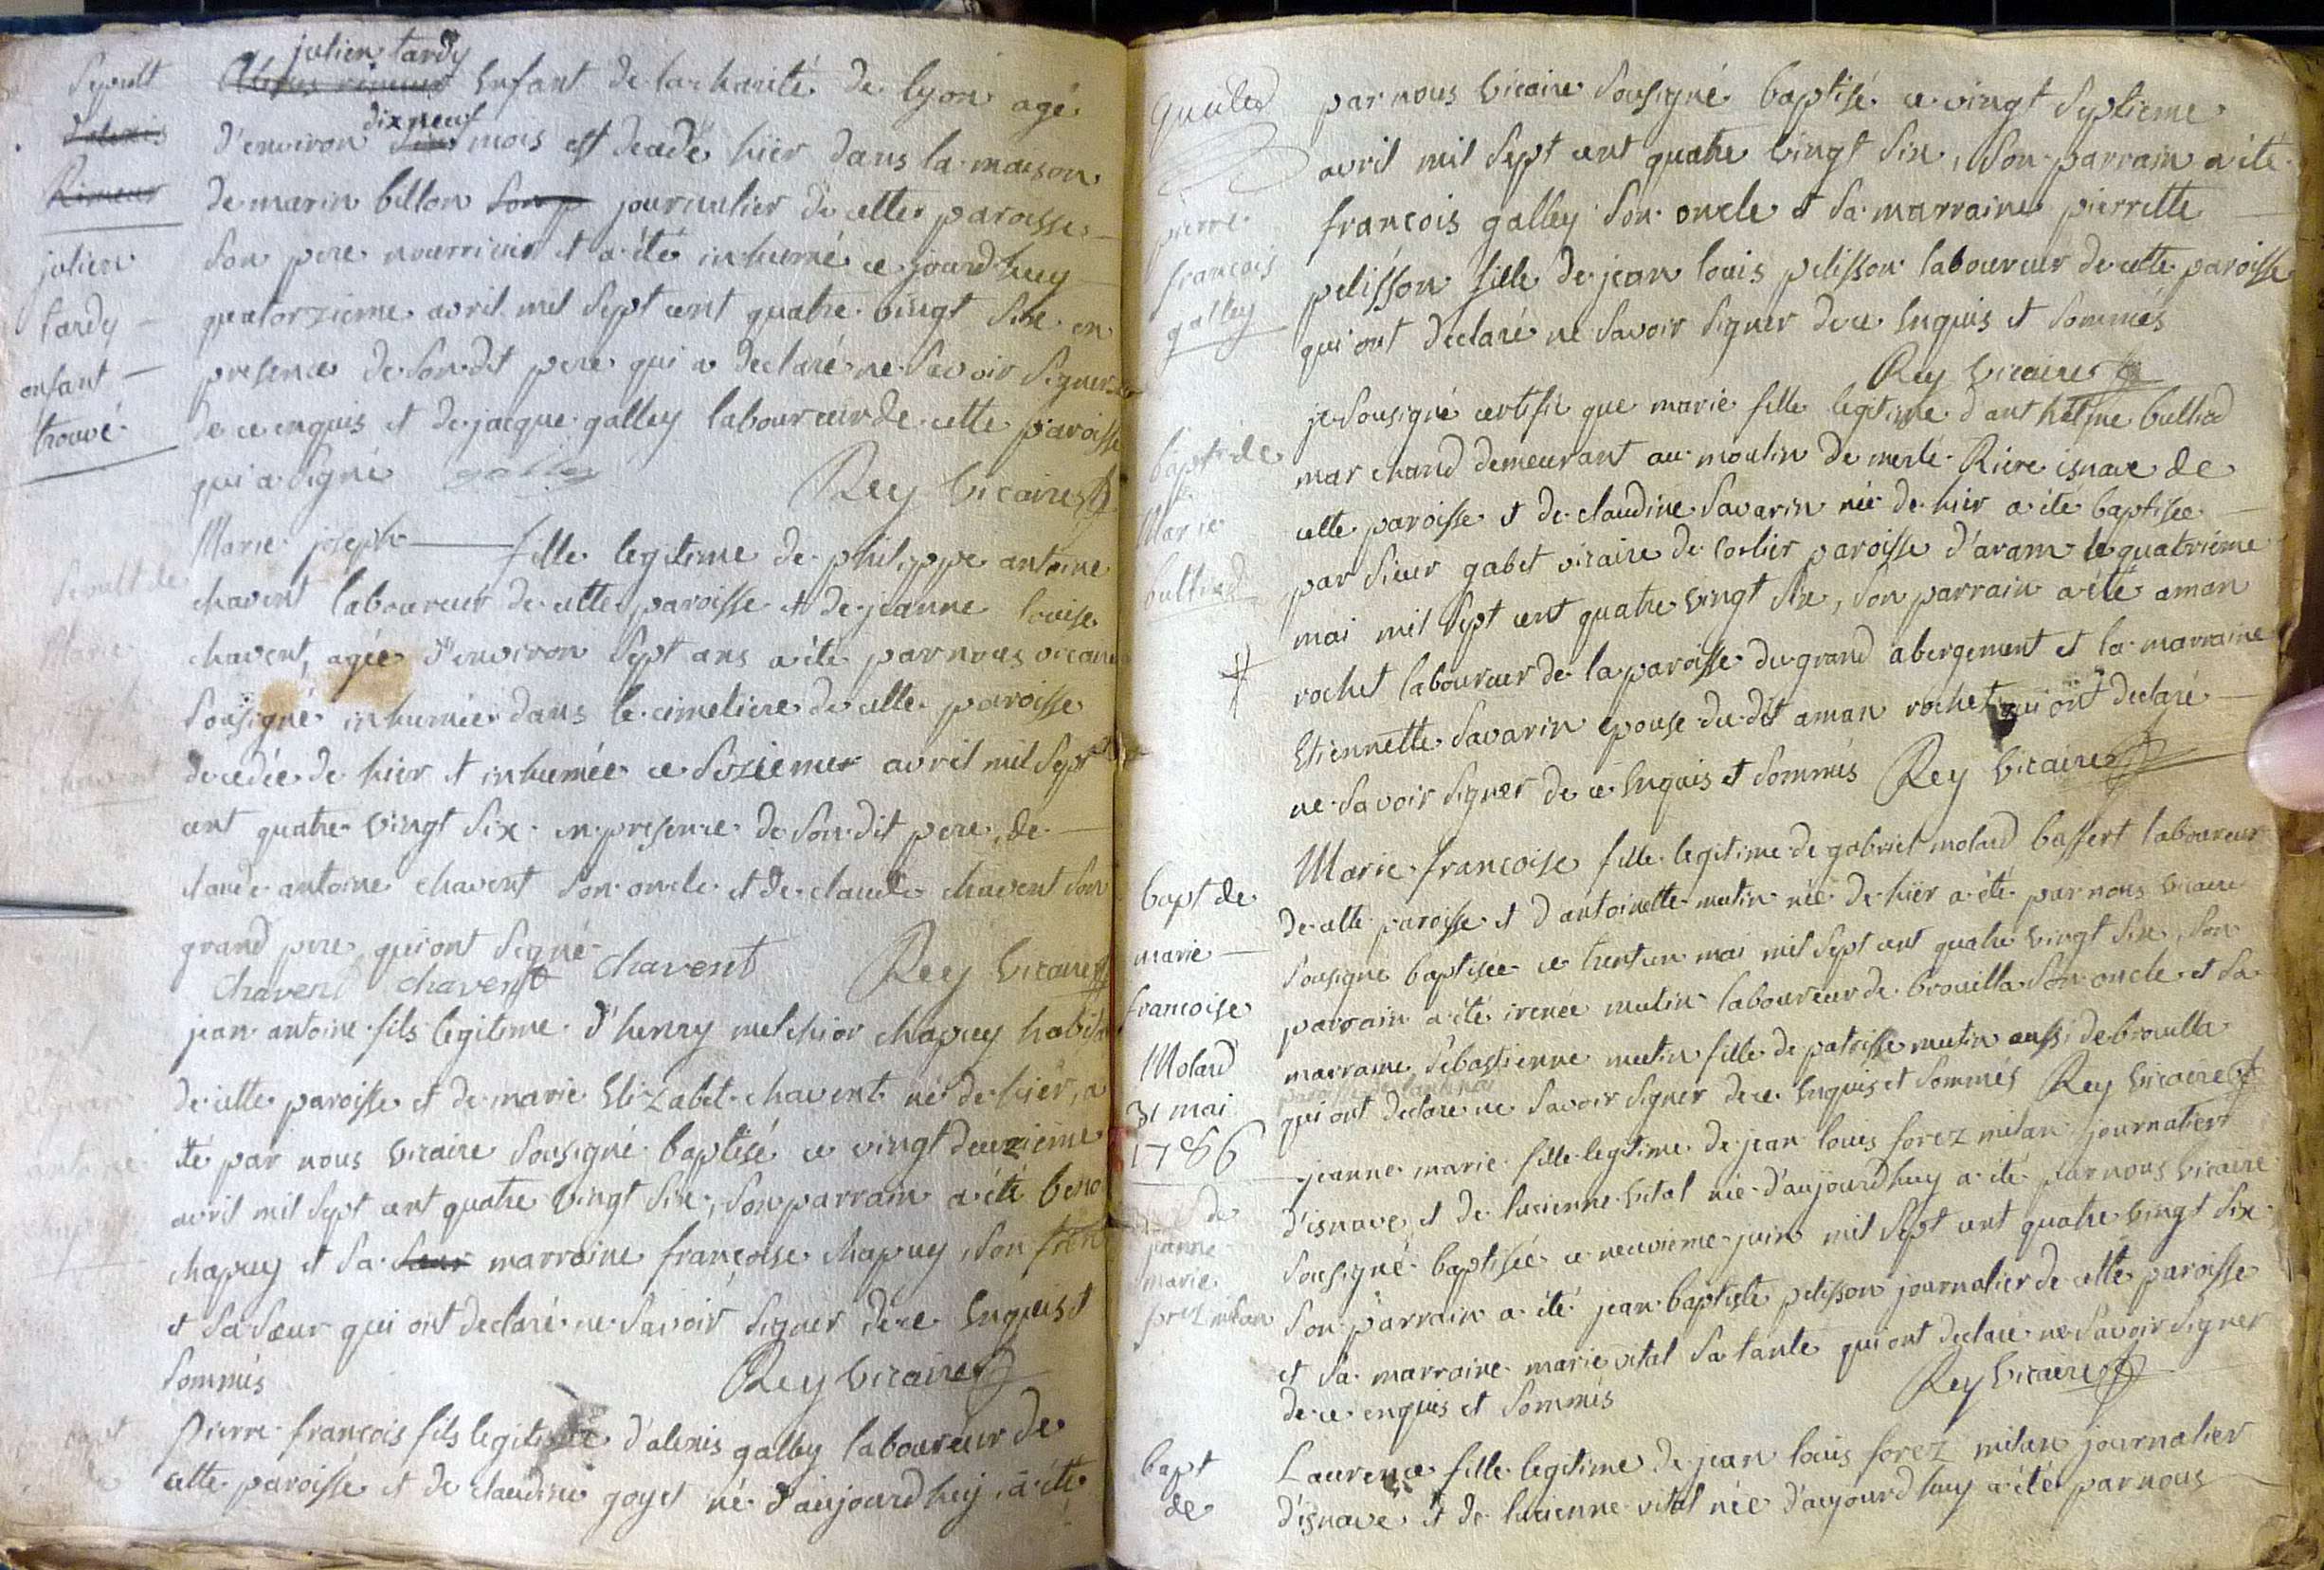 Sepult
d'alexis
Rimeur
julien
tardy
enfant
trouvé
julien tardy
Alexis rimeur Enfant de la charité de lyon agé
dix neuf
d'environ six mois est decadé hier dans la maison
de marin billon son p journalier de cette paroisse
son pere nourricier et a été inhumé ce jourd'huy
quatorzieme avril mil sept cent quatre vingt six en
presence de son dit pere qui a declaré ne savoir signer
de ce enquis et de jacque galley laboureur de cette paroisse
qui a signé galley Rey vicaire
Sepult de
Marie
joseph
chavent
Marie joseph fille legitime de philippe antoine
chavent laboureur de cette paroisse et de jeanne louise
chavent, agée d'environ sept ans a été par nous vicaire
sousigné inhumée dans le cimetiere de cette paroisse
decedée de hier et inhumée ce sezieme avril mil sept
cent quatre vingt six en presence de son dit pere, de
claude antoine chavent son oncle et de claude chavent son
grand pere qui ont signé
chavent chavent chavent Rey vicaire
bapt
de jean
antoine
chapuy
jean antoine fils legitime d'henry melchior chapuy habitant
de cette paroisse et de marie Elizabet chavent né de hier, a
été par nous vicaire sousigné baptisé ce vingt deuxieme
avril mil sept cent quatre vingt six, son parrain a été beno
chapuy et sa sœur marraine françoise chapuy, son frere
et sa sœur qui ont declaré ne savoir signer de ce Enquis et
sommés Rey vicaire
bapt
de
Pierre françois fils legitime d'alexis galley laboureur de
cette paroisse et de claudine goyet né d'aujourd'huy, a été
pierre
françois
galley
par nous vicaire sousigné baptisé ce vingt septieme
avril mil sept cent quatre vingt six, son parrain a été
françois galley son oncle et sa marraine pierrette
pelisson fille de jean louis pelisson laboureur de cette paroisse
qui ont declaré ne savoir signer de ce Enquis et sommés
Rey vicaire
bapt de
Marie
bulliod
je sousigné certifie que marie fille legitime d'anthelme bulliod
marchand demeurant au moulin de merlé Riere isnave de
cette paroisse et de claudine savarin née de hier a été baptisée
par sieur gabet vicaire de corlier paroisse d'aram le quatrieme
mai mil sept cent quatre vingt six, son parrain a été aman
rochet laboureur de la paroisse du grand abergement et la marraine
Etiennette savarin epouse du dit aman rochet qui ont declaré
ne savoir signer de ce Enquis et sommés Rey vicaire
bapt de
marie
francoise
Molard
31 mai
1786
Marie françoise fille legitime de gabriel molard bassert laboureur
de cette paroisse et d'antoinette mutin née de hier a été par nous vicaire
sousigné baptisée ce trentun mai mil sept cent quatre vingt six, son
parrain a été irenée mutin laboureur de brouilla son oncle et sa
marraine sebastienne mutin fille de patrisse mutin aussi de brouilla
qui ont declaré ne savoir signer de ce Enquis et sommés Rey vicaire
de
jeanne
marie
forez milan
jeanne marie fille legitime de jean louis forez milan journalier
d'isnave, et de lucienne vital née d'aujourd'huy a été par nous vicaire
sousigné baptisée ce neuvieme juin mil sept cent quatre vingt six
son parrain a été jean baptiste pelisson journalier de cette paroisse
et sa marraine marie vital sa tante qui ont declaré ne savoir signer
de ce enquis et sommés Rey vicaire
bapt
de
Laurence fille legitime de jean louis forez milan journalier
d'isnave et de lucienne vital née d'aujourd'huy a été par nous